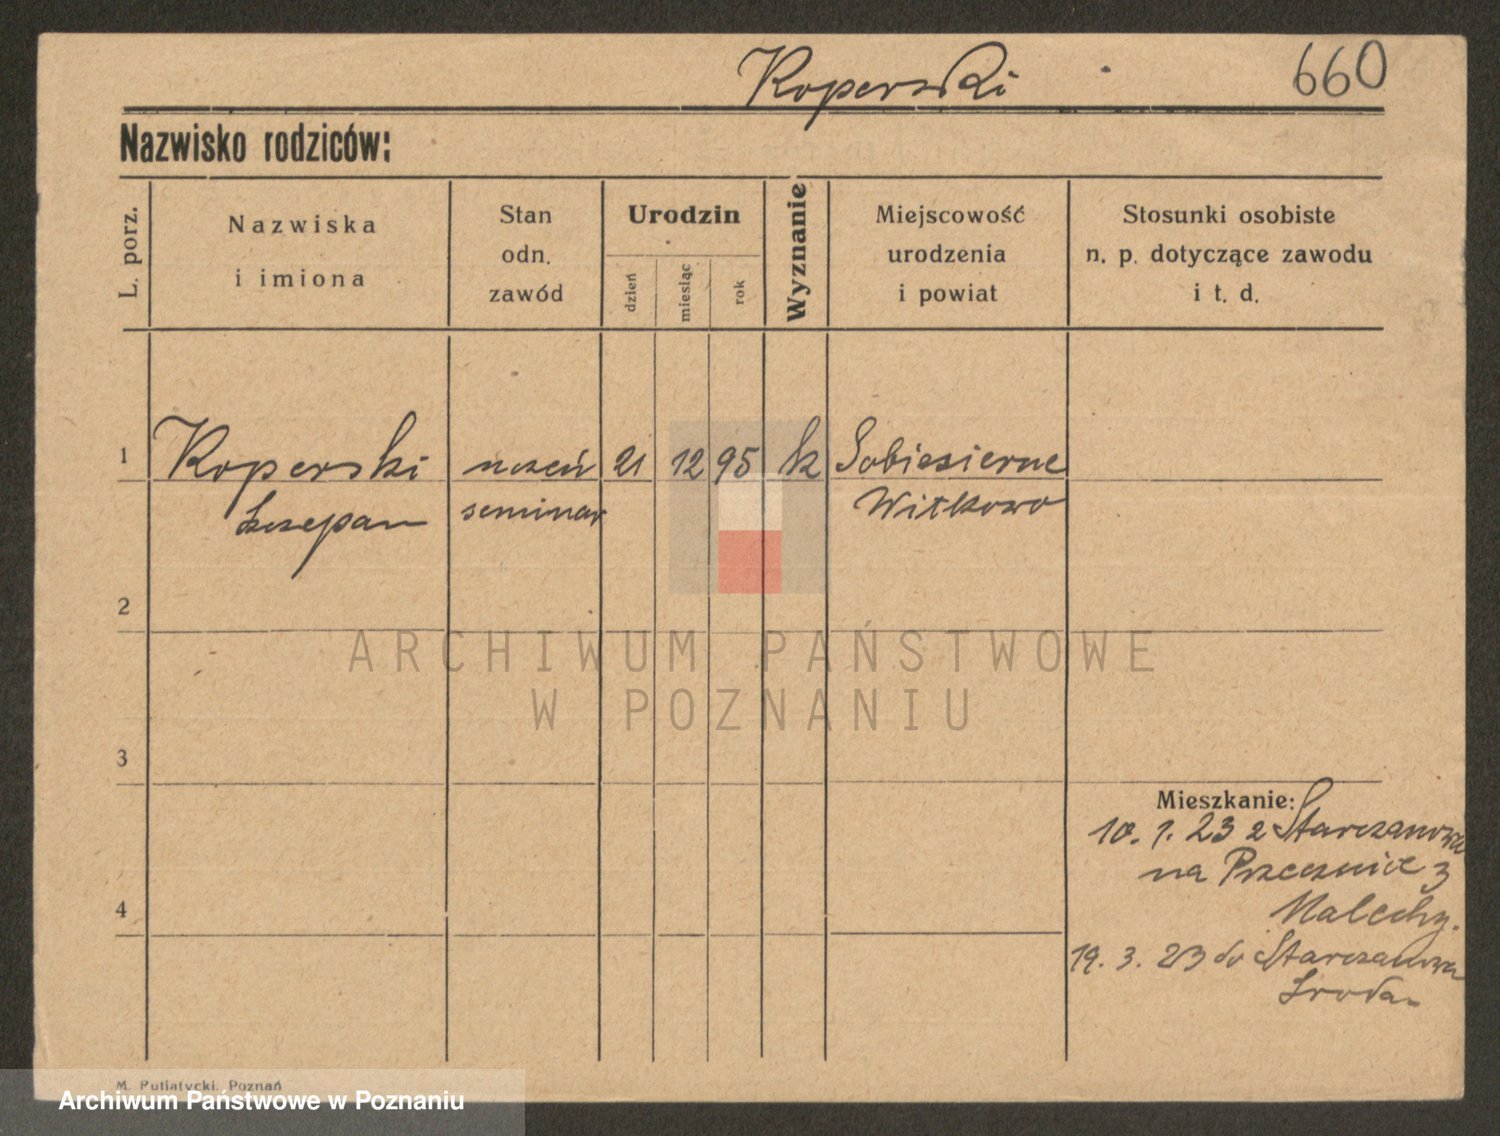 Koperski 660
Nazwisko rodziców:
L. porz.
Nazwiska
i imiona
Stan
odn.
zawód
Urodzin
dzień
miesiąc
rok
Wyznanie
Miejscowość
urodzenia
i powiat
Stosunki osobiste
n. p. dotyczące zawodu
i t. d.
1 Koperski uczeń 21 12 95 k Sobiesierne
Szczepan seminar Witkowo
2
ARCHIWUM PAŃSTWOWE
W POZNANIU
3
Mieszkanie:
10. 1. 23 z Starczanowa
na Przecznicę 3
Malechy.
4
19. 3. 23 do Starczanowa
Środa
M. Putiatycki, Poznań
Archiwum Państwowe w Poznaniu